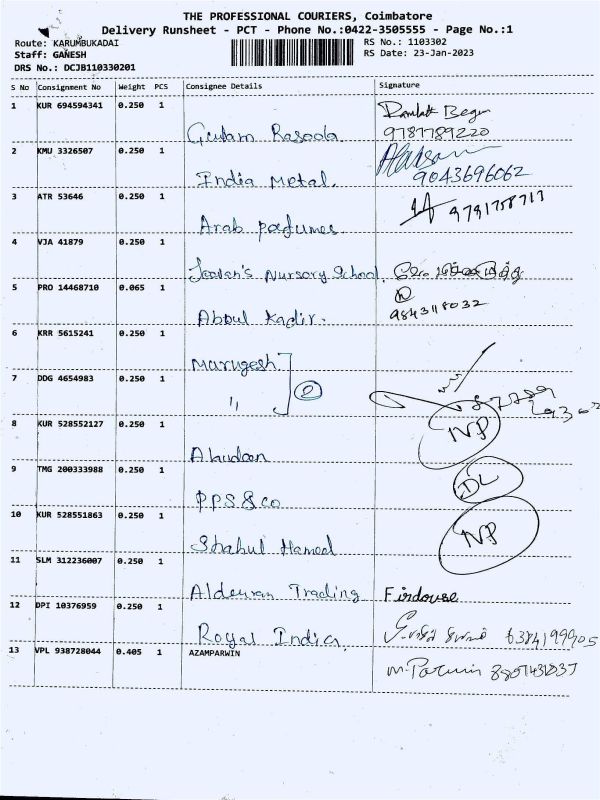 THE PROFESSIONAL COURIERS, Coimbatore
Delivery Runsheet - PCT - Phone No.:0422-3505555 - Page No.:1
Route: KARUMBUKADAI RS No.: 1103302
Staff: GANESH RS Date: 23-Jan-2023
DRS No.: DCJB110330201
S No Consignment No Weight PCS Consignee Details Signature
1 KUR 694594341 0.250 1
Gulam Rasoola 9787789220
2 KMU 3326507 0.250 1
India Metal. 9043696062
3 ATR 53646 0.250 1
Arab perfumes. 9791758717
4 VJA 41879 0.250 1
Nursory School.
5 PRO 14468710 0.065 1
Abdul Kadir. 9843118032
6 KRR 5615241 0.250 1
Murugesh
7 DDG 4654983 0.250 1
" 2
8 KUR 528552127 0.250 1
NP
9 TMG 200333988 0.250 1
PPS & Co DL
10 KUR 528551863 0.250 1
Shahul Hameed NP
11 SLM 312236007 0.250 1
Trading Firdouse
12 DPI 10376959 0.250 1
Royal India 6384199905
13 VPL 938728044 0.405 1 AZAMPARWIN
M. Parwin